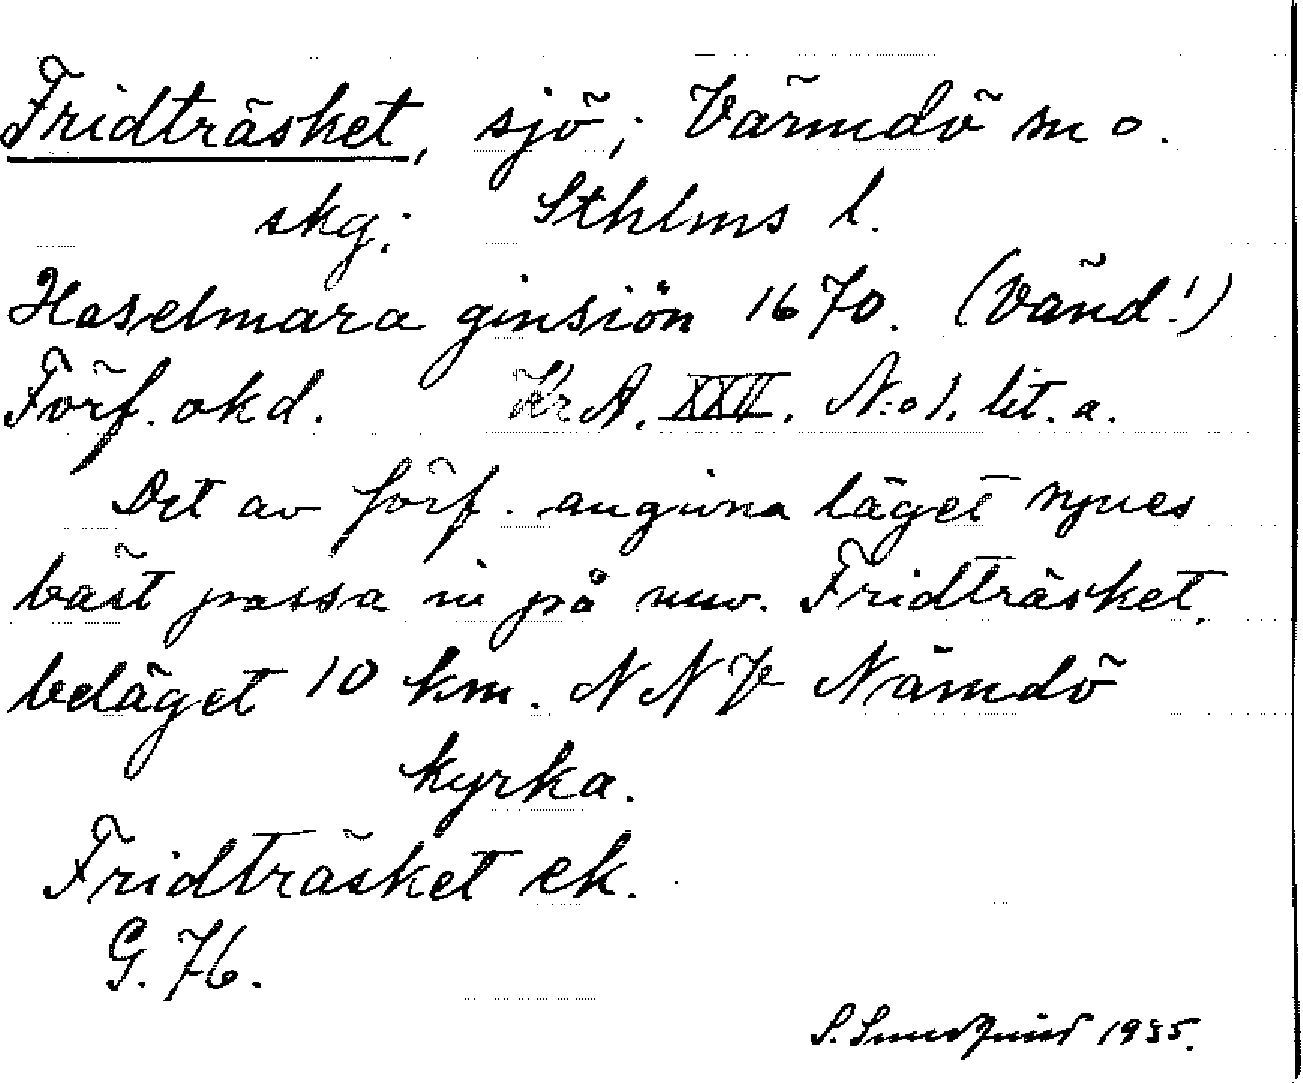 Fridträsket, sjö; Värmdö sn o.
skg; Sthlms l.
Haselmara ginsiön 1670. (Vänd!)
Förf. okd. KrA. XXV. N:o 1. lit. a.
Det av förf. angivna läget synes
bäst passa in på nuv. Fridträsket,
beläget 10 km. NNV Nämdö
kyrka.
Fridträsket ek.
G. 76.
S. Sundquist 1935.